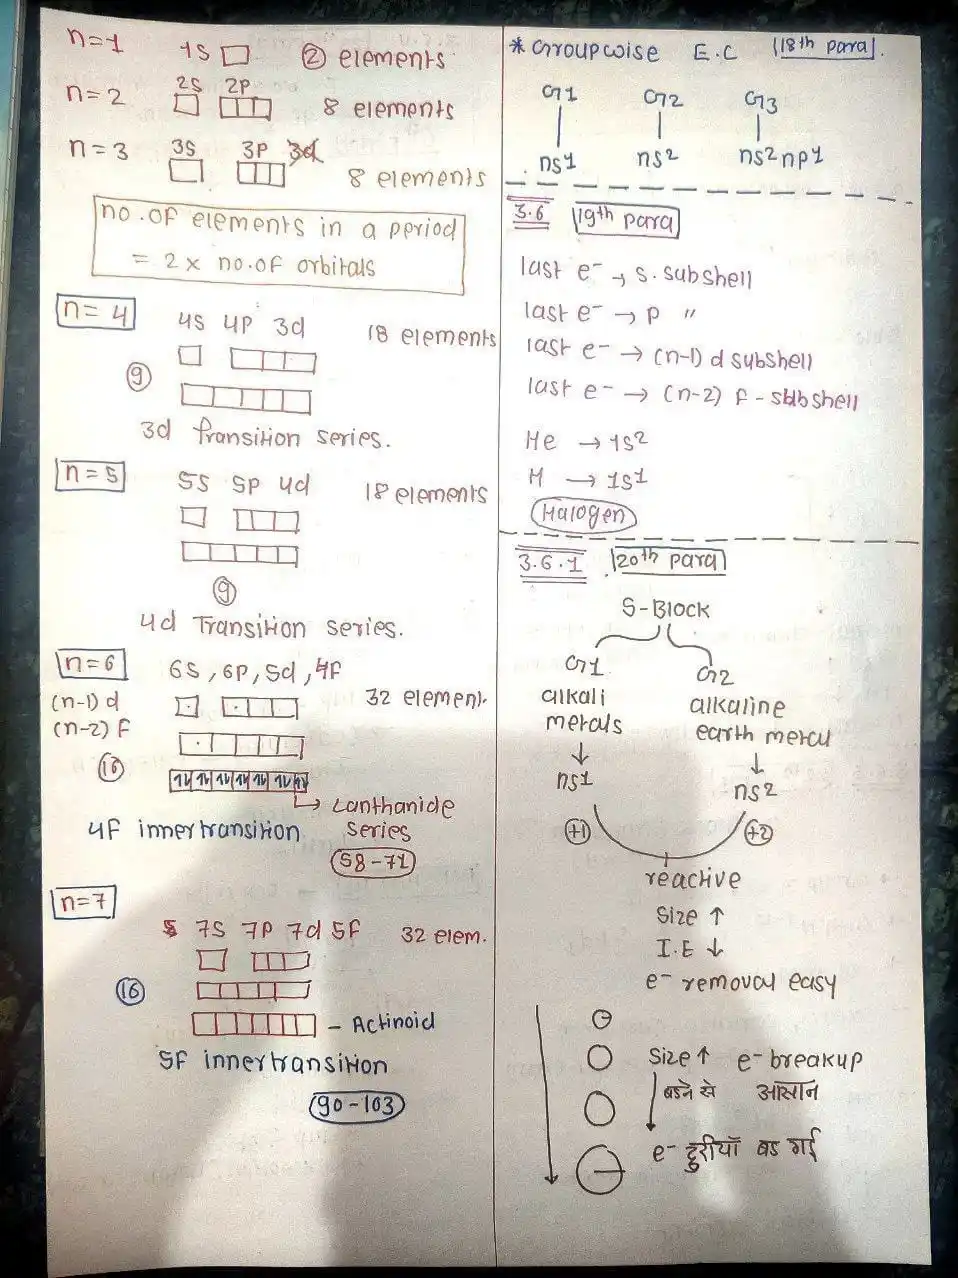 n=1 1S ② elements
2S 2P
n=2 8 elements
n=3 3S 3P 3d
8 elements
no.of elements in a period
= 2 x no.of orbitals
n=4 4S 4P 3d 18 elements
⑨
3d Transition series.
n=5 5S 5P 4d 18 elements
⑨
4d Transition series.
n=6 6S, 6P, 5d, 4F
(n-1) d 32 element.
(n-2) F
⑯
Lanthanide
4F inner transition series
58-71
n=7
7S 7P 7d 5F 32 elem.
⑯
- Actinoid
5F inner transition
90-103
* Groupwise E.C 18th para.
G1 G2 G3
ns1 ns2 ns2 np1
3.6 19th para
last e- → s. subshell
last e- → p "
last e- → (n-1) d subshell
last e- → (n-2) F - subshell
He → 1s2
H → 1s1
Halogen
3.6.1 20th para
S-Block
G1 G2
alkali alkaline
metals earth metal
↓ ↓
ns1 ns2
+1 +2
reactive
Size ↑
I.E ↓
e- removal easy
Size ↑ e- breakup
बडने से आसान
e- दुरीयाँ बड गई